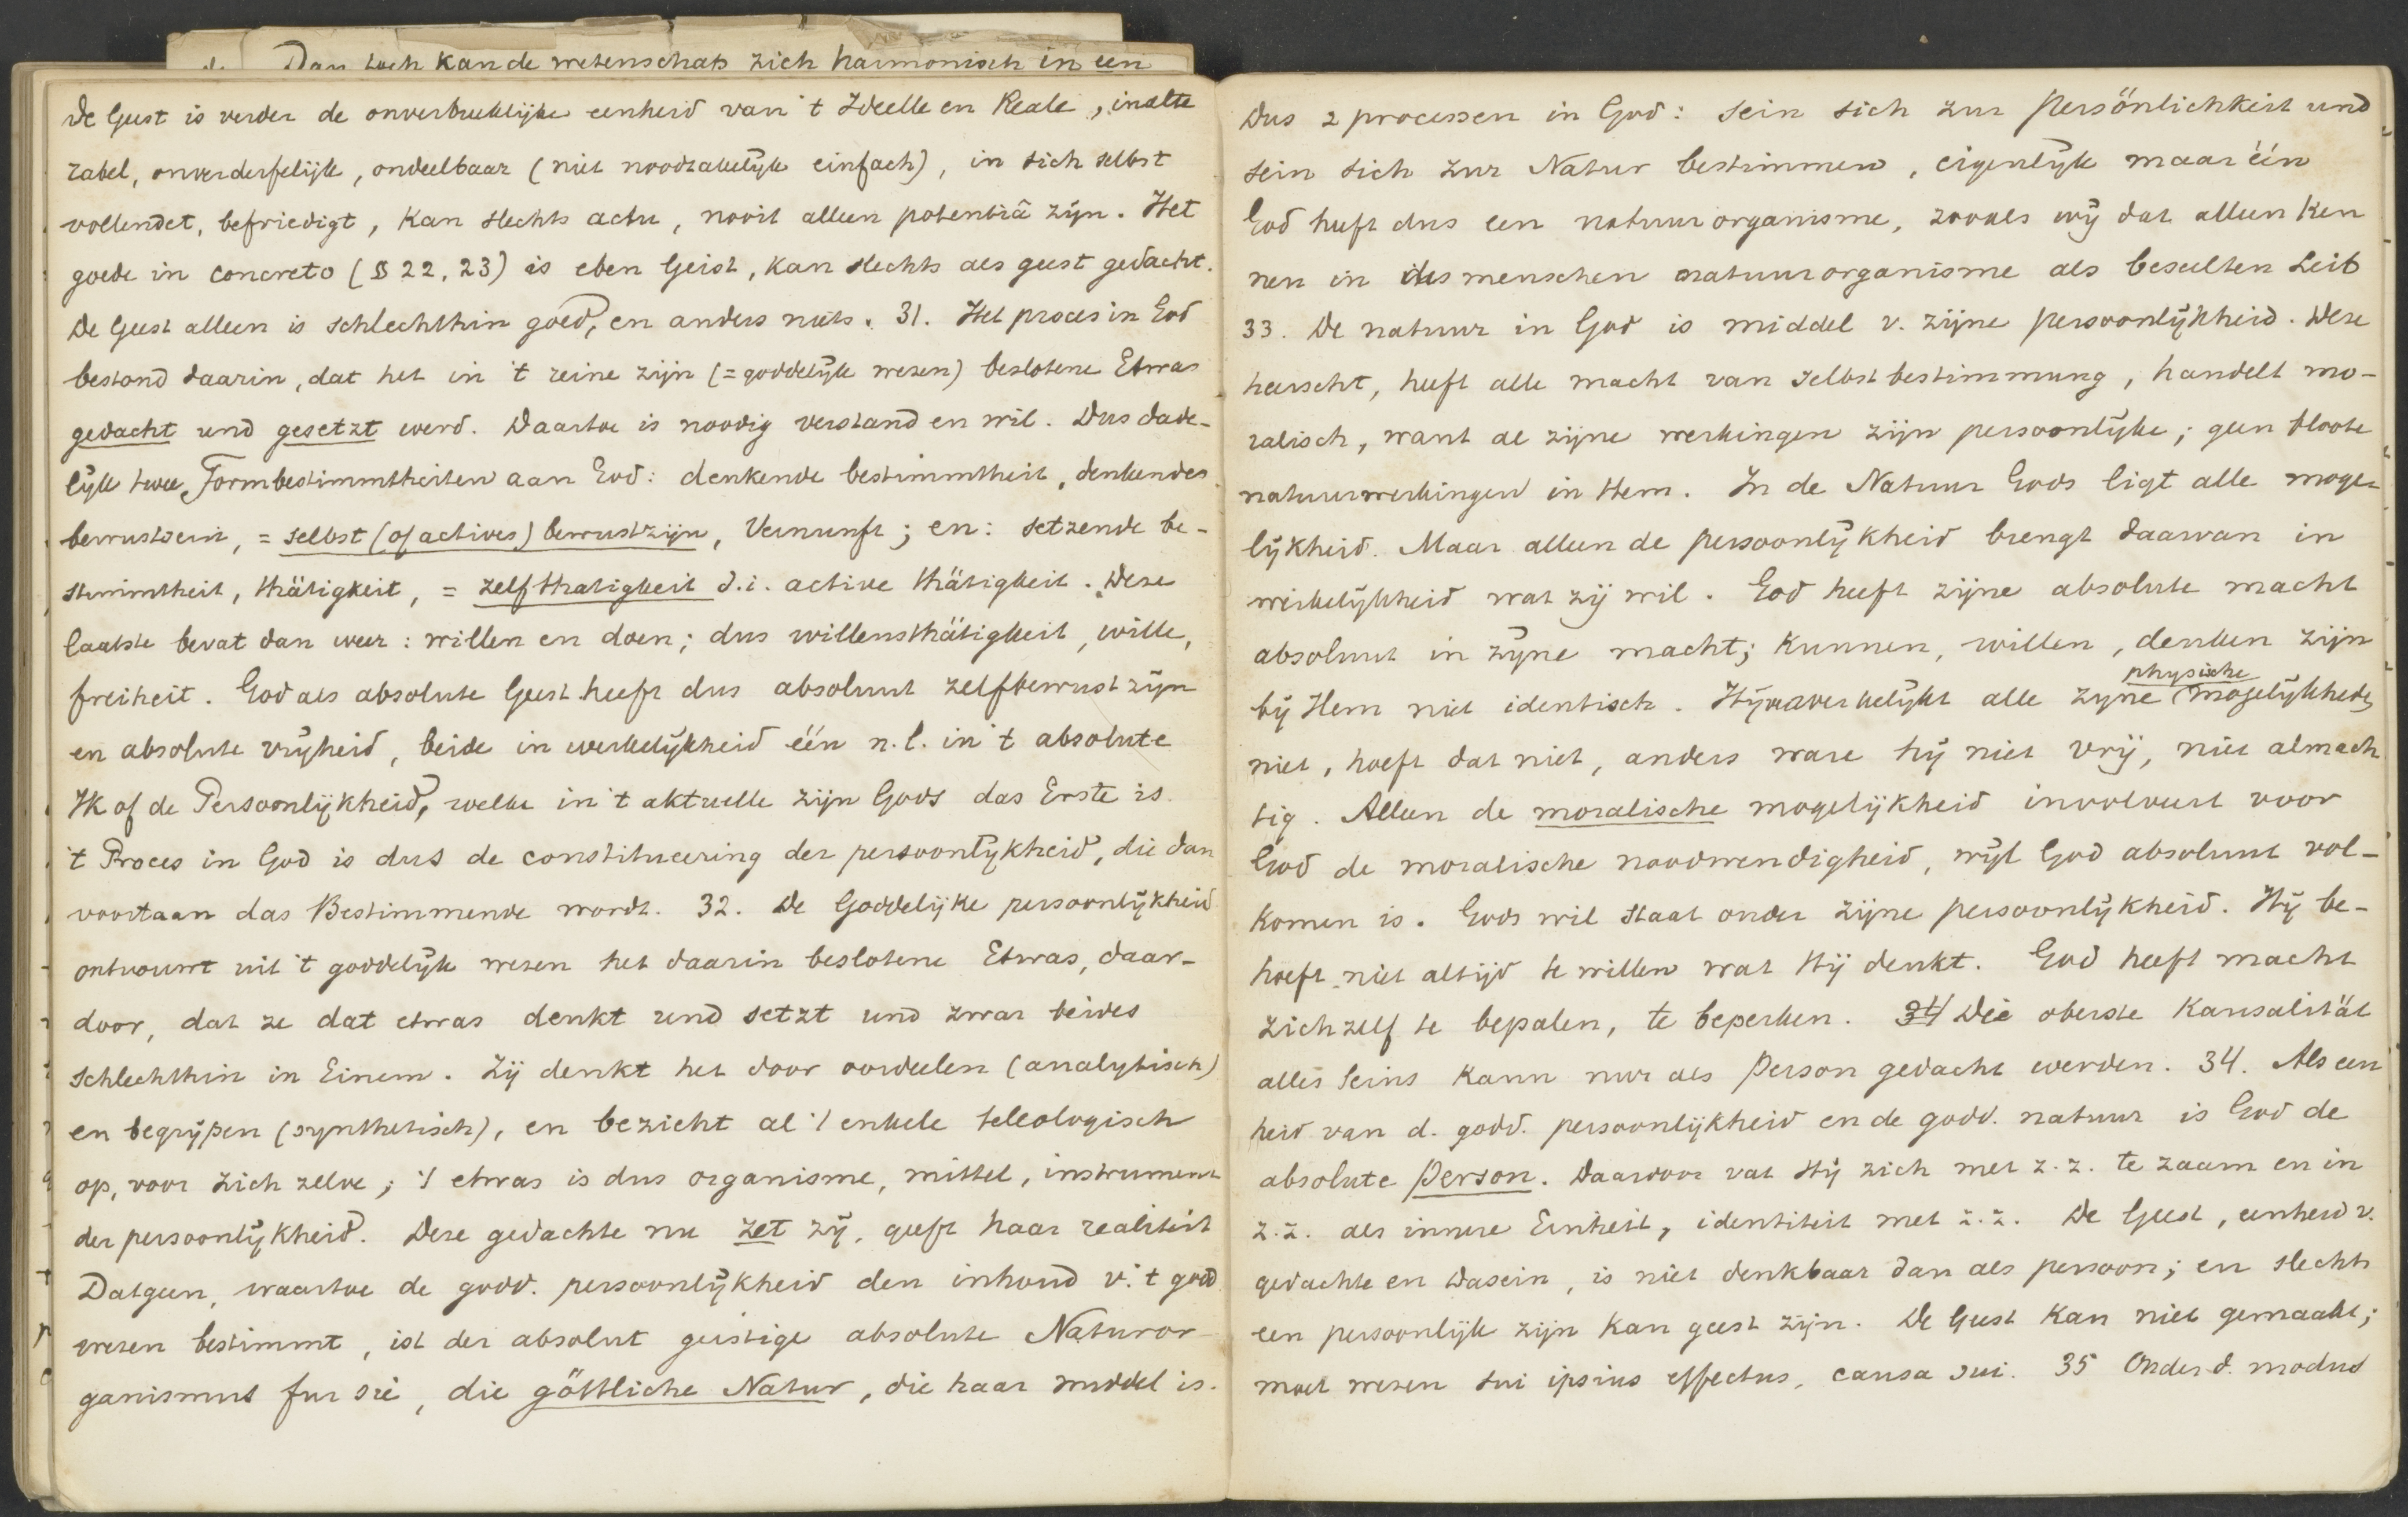 Dan toch kan de wetenschap zich harmonisch in een
De Geest is verder de onverbreeklijke eenheid van 't Ideelle en Reale, inalte
rabel, onverderfelijk, ondeelbaar (niet noodzakelijk einfach), in sich selbst
vollendet, befriedigt, kan slechts actu, nooit alleen potentiâ zijn. Het
goede in concreto (§ 22, 23) is eben Geist, kan slechts als geest gedacht.
De Geest alleen is schlechthin goed, en anders niets. 31. Het proces in God
bestond daarin, dat het in 't reine zijn (= goddelijk wezen) beslotene Etwas
gedacht und gesetzt werd. Daartoe is noodig verstand en wil. Dus dade-
lijk twee Formbestimmtheiten aan God: denkende bestimmtheit, denkendes
bewustsein, = selbst (of actives) bewustzijn, Vernunft; en: setzende be-
stimmtheit, thätigkeit, = zelfthatigkeit d.i. active thätigkeit. Deze
laatste bevat dan weer: willen en doen; dus willensthätigkeit, wille,
freiheit. God als absolute Geest heeft dus absoluut zelfbewustzijn
en absolute vrijheid, beide in werkelijkheid één n.l. in 't absolute
Ik of de Persoonlijkheid, welke in 't aktuelle zijn Gods das Erste is.
't Proces in God is dus de constitueering der persoonlijkheid, die dan
voortaan das Bestimmende wordt. 32. De Goddelijke persoonlijkheid
ontvouwt uit 't goddelijk wezen het daarin beslotene Etwas, daar-
door, dat ze dat etwas denkt und setzt und zwar beides
schlechthin in Einem. Zij denkt het door oordeelen (analytisch)
en begrijpen (synthetisch), en bezicht al 't enkele teleologisch
op, voor zich zelve; 't etwas is dus organisme, mittel, instrument
der persoonlijkheid. Deze gedachte nu zet zij, geeft haar realiteit
Datgeen, waartoe de godd. persoonlijkheid den inhoud v. 't godd
wezen bestimmt, ist der absolut geistige absolute Naturor-
ganismus fur sie, die göttliche Natur, die haar middel is.
Dus 2 processen in God: sein sich zur Persönlichkeit und
sein sich zur Natur bestimmen, eigenlijk maar één
God heeft dus een natuurorganisme, zooals wij dat alleen ken
nen in des menschen natuurorganisme als beseelten Leib
33. De natuur in God is middel v. zijne persoonlijkheid. Deze
heerscht, heeft alle macht van selbstbestimmung, handelt mo-
ralisch, want al zijne werkingen zijn persoonlijke; geen bloote
natuurwerkingen in Hem. In de Natuur Gods ligt alle moge-
lijkheid. Maar alleen de persoonlijkheid brengt daarvan in
werkelijkheid wat zij wil. God heeft zijne absolute macht
absoluut in zijne macht; kunnen, willen, denken zijn
bij Hem niet identisch. Hij verwerkelijkt alle zijne physische mogelijkheden
niet, hoeft dat niet, anders ware hij niet vrij, niet almach
tig. Alleen de moralische mogelijkheid involveert voor
God de moralische noodwendigheid, wijl God absoluut vol-
komen is. Gods wil staat onder zijne persoonlijkheid. Hij be-
hoeft niet altijd te willen wat Hij denkt. God heeft macht
zichzelf te bepalen, te beperken. 34 Die oberste Kausalität
alles Seins kann nur als Person gedacht werden. 34. Als een
heid van d. godd. persoonlijkheid en de godd. natuur is God de
absolute Person. Daardoor vat Hij zich met z.z. te zaam en in
z.z. als innere Einheit, identiteit met z.z. De Geest, eenheid v.
gedachte en Dasein, is niet denkbaar dan als persoon; en slechts
een persoonlijk zijn kan geest zijn. De Geest kan niet gemaakt;
moet wezen sui ipsius effectus, causa sui. 35 Onder d. modus